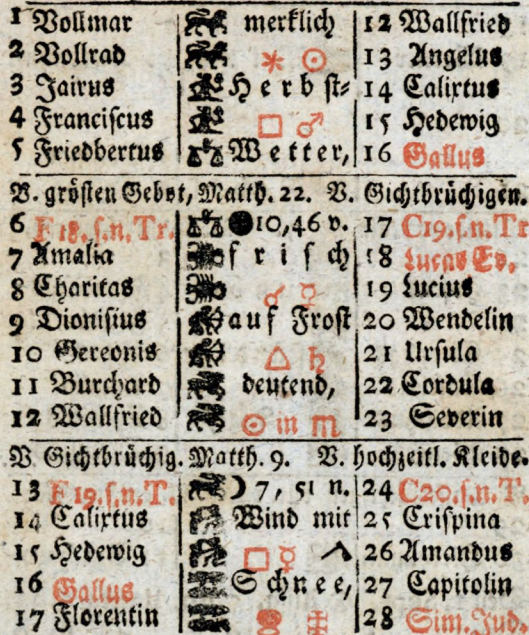 1 Vollmar merklich 12 Wallfried
2 Vollrad ⚹ ☉ 13 Angelus
3 Jairus Herbst⸗ 14 Calixtus
4 Franciſcus □ ♂ 15 Hedewig
5 Friedbertus Wetter, 16 Gallus
V. gröſten Gebot, Matth. 22. V. Gichtbrüchigen.
6 F18.ſ.n.Tr. ●10,46 v. 17 C19.ſ.n.Tr
7 Amalia friſch 18 Lucas Ev.
8 Charitas ☌ ☿ 19 Lucius
9 Dioniſius auf Froſt 20 Wendelin
10 Gereonis △ ♄ 21 Urſula
11 Burchard deutend, 22 Cordula
12 Wallfried ☉ in ♏ 23 Severin
V Gichtbrüchig. Matth. 9. V. hochzeitl. Kleide.
13 F19.ſ.n.T. ☽ 7, 51 n. 24 C20.ſ.n.T
14 Calixtus Wind mit 25 Criſpina
15 Hedewig □ ☿ 26 Amandus
16 Gallus Schnee, 27 Capitolin
17 Florentin 28 Sim.Jud.